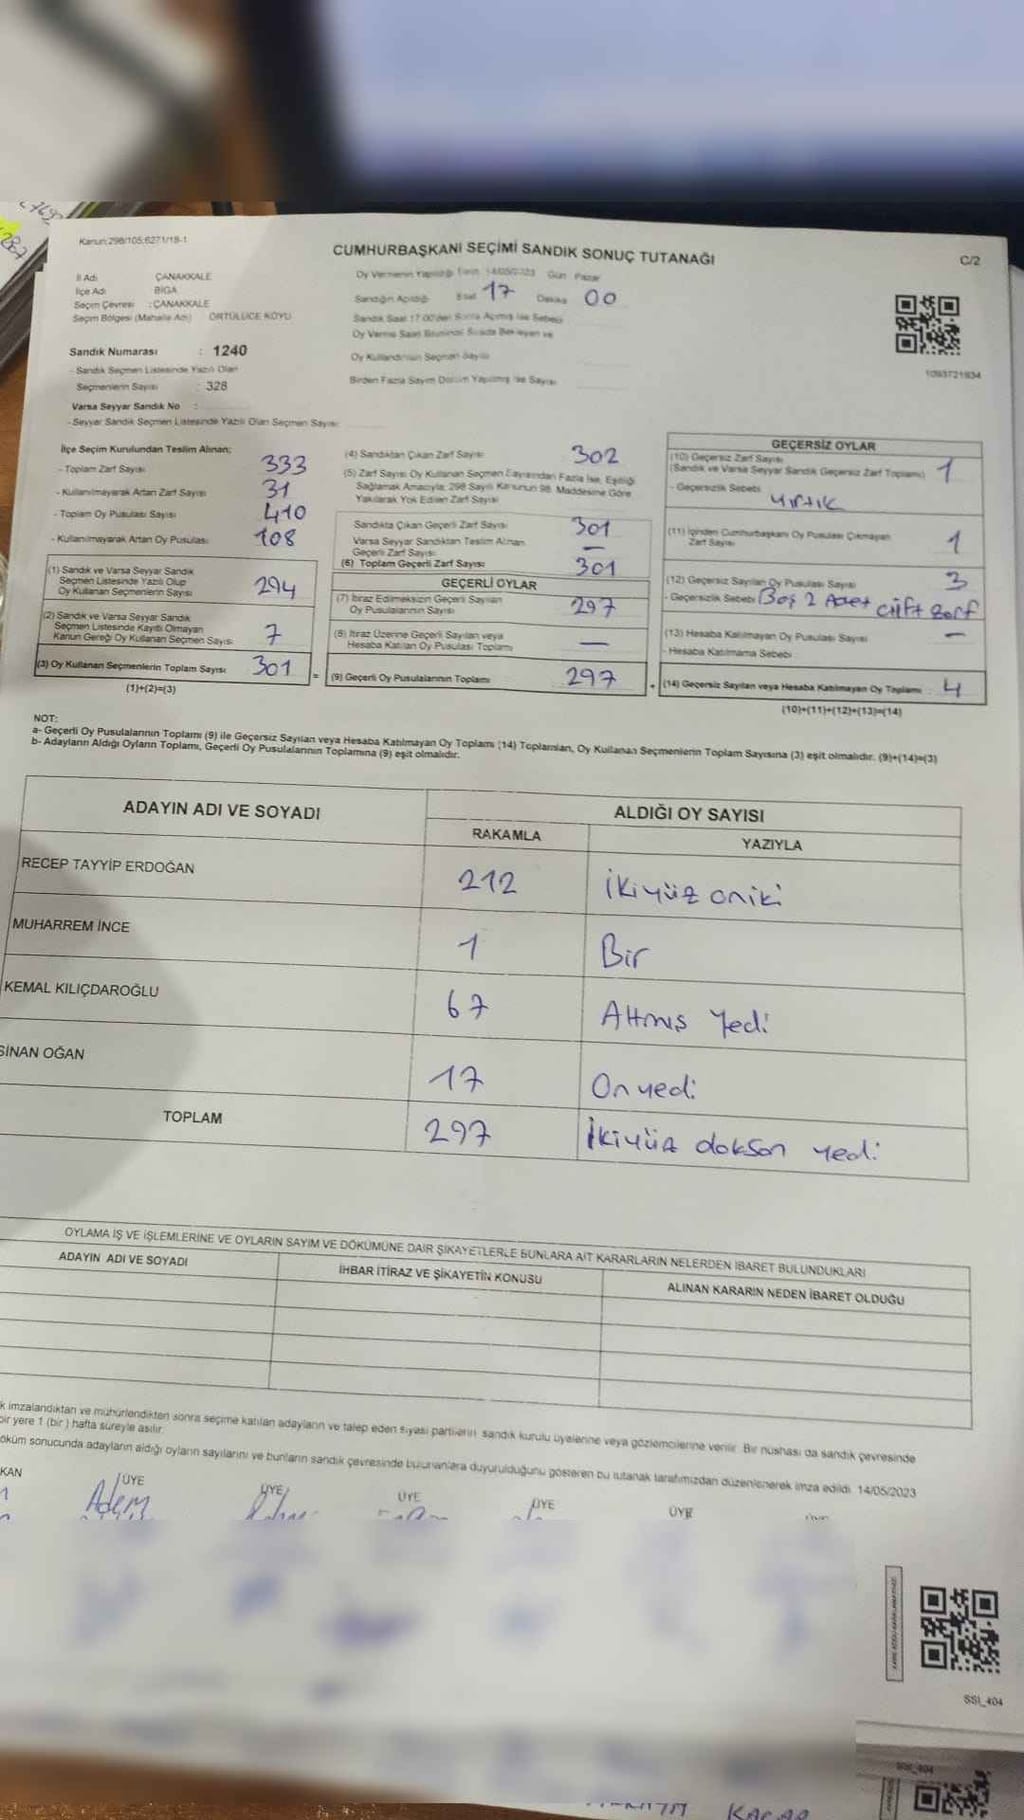 Kanun:298/105;6271/18-1
CUMHURBAŞKANI SEÇİMİ SANDIK SONUÇ TUTANAĞI
C/2
İl Adı ÇANAKKALE
İlçe Adı BİGA
Seçim Çevresi :ÇANAKKALE
Seçim Bölgesi (Mahalle Adı) ORTÜLÜCE KÖYÜ
Oy Vermenin Yapıldığı Tarih 14/05/2023 Gün Pazar
Sandığın Açıldığı Saat 17 Dakika 00
Sandık Saat 17:00'den Sonra Açılmış İse Sebebi
Oy Verme Saati Bitiminde Sırada Bekleyen ve
Oy Kullandırılan Seçmen Sayısı
Birden Fazla Sayım Döküm Yapılmış İse Sayısı
1093721934
Sandık Numarası : 1240
- Sandık Seçmen Listesinde Yazılı Olan
Seçmenlerin Sayısı : 328
Varsa Seyyar Sandık No :
- Seyyar Sandık Seçmen Listesinde Yazılı Olan Seçmen Sayısı:
İlçe Seçim Kurulundan Teslim Alınan;
- Toplam Zarf Sayısı 333
- Kullanılmayarak Artan Zarf Sayısı 31
- Toplam Oy Pusulası Sayısı 410
- Kullanılmayarak Artan Oy Pusulası 108
(1) Sandık ve Varsa Seyyar Sandık
Seçmen Listesinde Yazılı Olup
Oy Kullanan Seçmenlerin Sayısı 294
(2) Sandık ve Varsa Seyyar Sandık
Seçmen Listesinde Kayıtlı Olmayan
Kanun Gereği Oy Kullanan Seçmen Sayısı 7
(3) Oy Kullanan Seçmenlerin Toplam Sayısı 301
(1)+(2)=(3)
(4) Sandıktan Çıkan Zarf Sayısı 302
(5) Zarf Sayısı Oy Kullanan Seçmen Sayısından Fazla İse, Eşitliği
Sağlamak Amacıyla; 298 Sayılı Kanunun 98. Maddesine Göre
Yakılarak Yok Edilen Zarf Sayısı
Sandıkta Çıkan Geçerli Zarf Sayısı 301
Varsa Seyyar Sandıktan Teslim Alınan
Geçerli Zarf Sayısı —
(6) Toplam Geçerli Zarf Sayısı 301
GEÇERLİ OYLAR
(7) İtiraz Edilmeksizin Geçerli Sayılan
Oy Pusulalarının Sayısı 297
(8) İtiraz Üzerine Geçerli Sayılan veya
Hesaba Katılan Oy Pusulası Toplamı —
= (9) Geçerli Oy Pusulalarının Toplamı 297
GEÇERSİZ OYLAR
(10) Geçersiz Zarf Sayısı
(Sandık ve Varsa Seyyar Sandık Geçersiz Zarf Toplamı) 1
- Geçersizlik Sebebi
Yırtık
(11) İçinden Cumhurbaşkanı Oy Pusulası Çıkmayan
Zarf Sayısı 1
(12) Geçersiz Sayılan Oy Pusulası Sayısı 3
- Geçersizlik Sebebi Boş 2 Adet çift zarf
(13) Hesaba Katılmayan Oy Pusulası Sayısı —
- Hesaba Katılmama Sebebi
+ (14) Geçersiz Sayılan veya Hesaba Katılmayan Oy Toplamı 4
(10)+(11)+(12)+(13)=(14)
NOT:
a- Geçerli Oy Pusulalarının Toplamı (9) ile Geçersiz Sayılan veya Hesaba Katılmayan Oy Toplamı (14) Toplamları, Oy Kullanan Seçmenlerin Toplam Sayısına (3) eşit olmalıdır. (9)+(14)=(3)
b- Adayların Aldığı Oyların Toplamı, Geçerli Oy Pusulalarının Toplamına (9) eşit olmalıdır.
ADAYIN ADI VE SOYADI
ALDIĞI OY SAYISI
RAKAMLA YAZIYLA
RECEP TAYYİP ERDOĞAN 212 İkiyüz oniki
MUHARREM İNCE 1 Bir
KEMAL KILIÇDAROĞLU 67 Altmış Yedi
SİNAN OĞAN 17 Onyedi
TOPLAM 297 İkiyüz doksan yedi
OYLAMA İŞ VE İŞLEMLERİNE VE OYLARIN SAYIM VE DÖKÜMÜNE DAİR ŞİKAYETLERLE BUNLARA AİT KARARLARIN NELERDEN İBARET BULUNDUKLARI
ADAYIN ADI VE SOYADI İHBAR İTİRAZ VE ŞİKAYETİN KONUSU ALINAN KARARIN NEDEN İBARET OLDUĞU
k imzalandıktan ve mühürlendikten sonra seçime katılan adayların ve talep eden siyasi partilerin sandık kurulu üyelerine veya gözlemcilerine verilir. Bir nüshası da sandık çevresinde
bir yere 1 (bir) hafta süreyle asılır.
öküm sonucunda adayların aldığı oyların sayılarını ve bunların sandık çevresinde bulunanlara duyurulduğunu gösteren bu tutanak tarafımızdan düzenlenerek imza edildi. 14/05/2023
KAN ÜYE ÜYE ÜYE ÜYE ÜYE
Adem
SSI_404
SSI_404